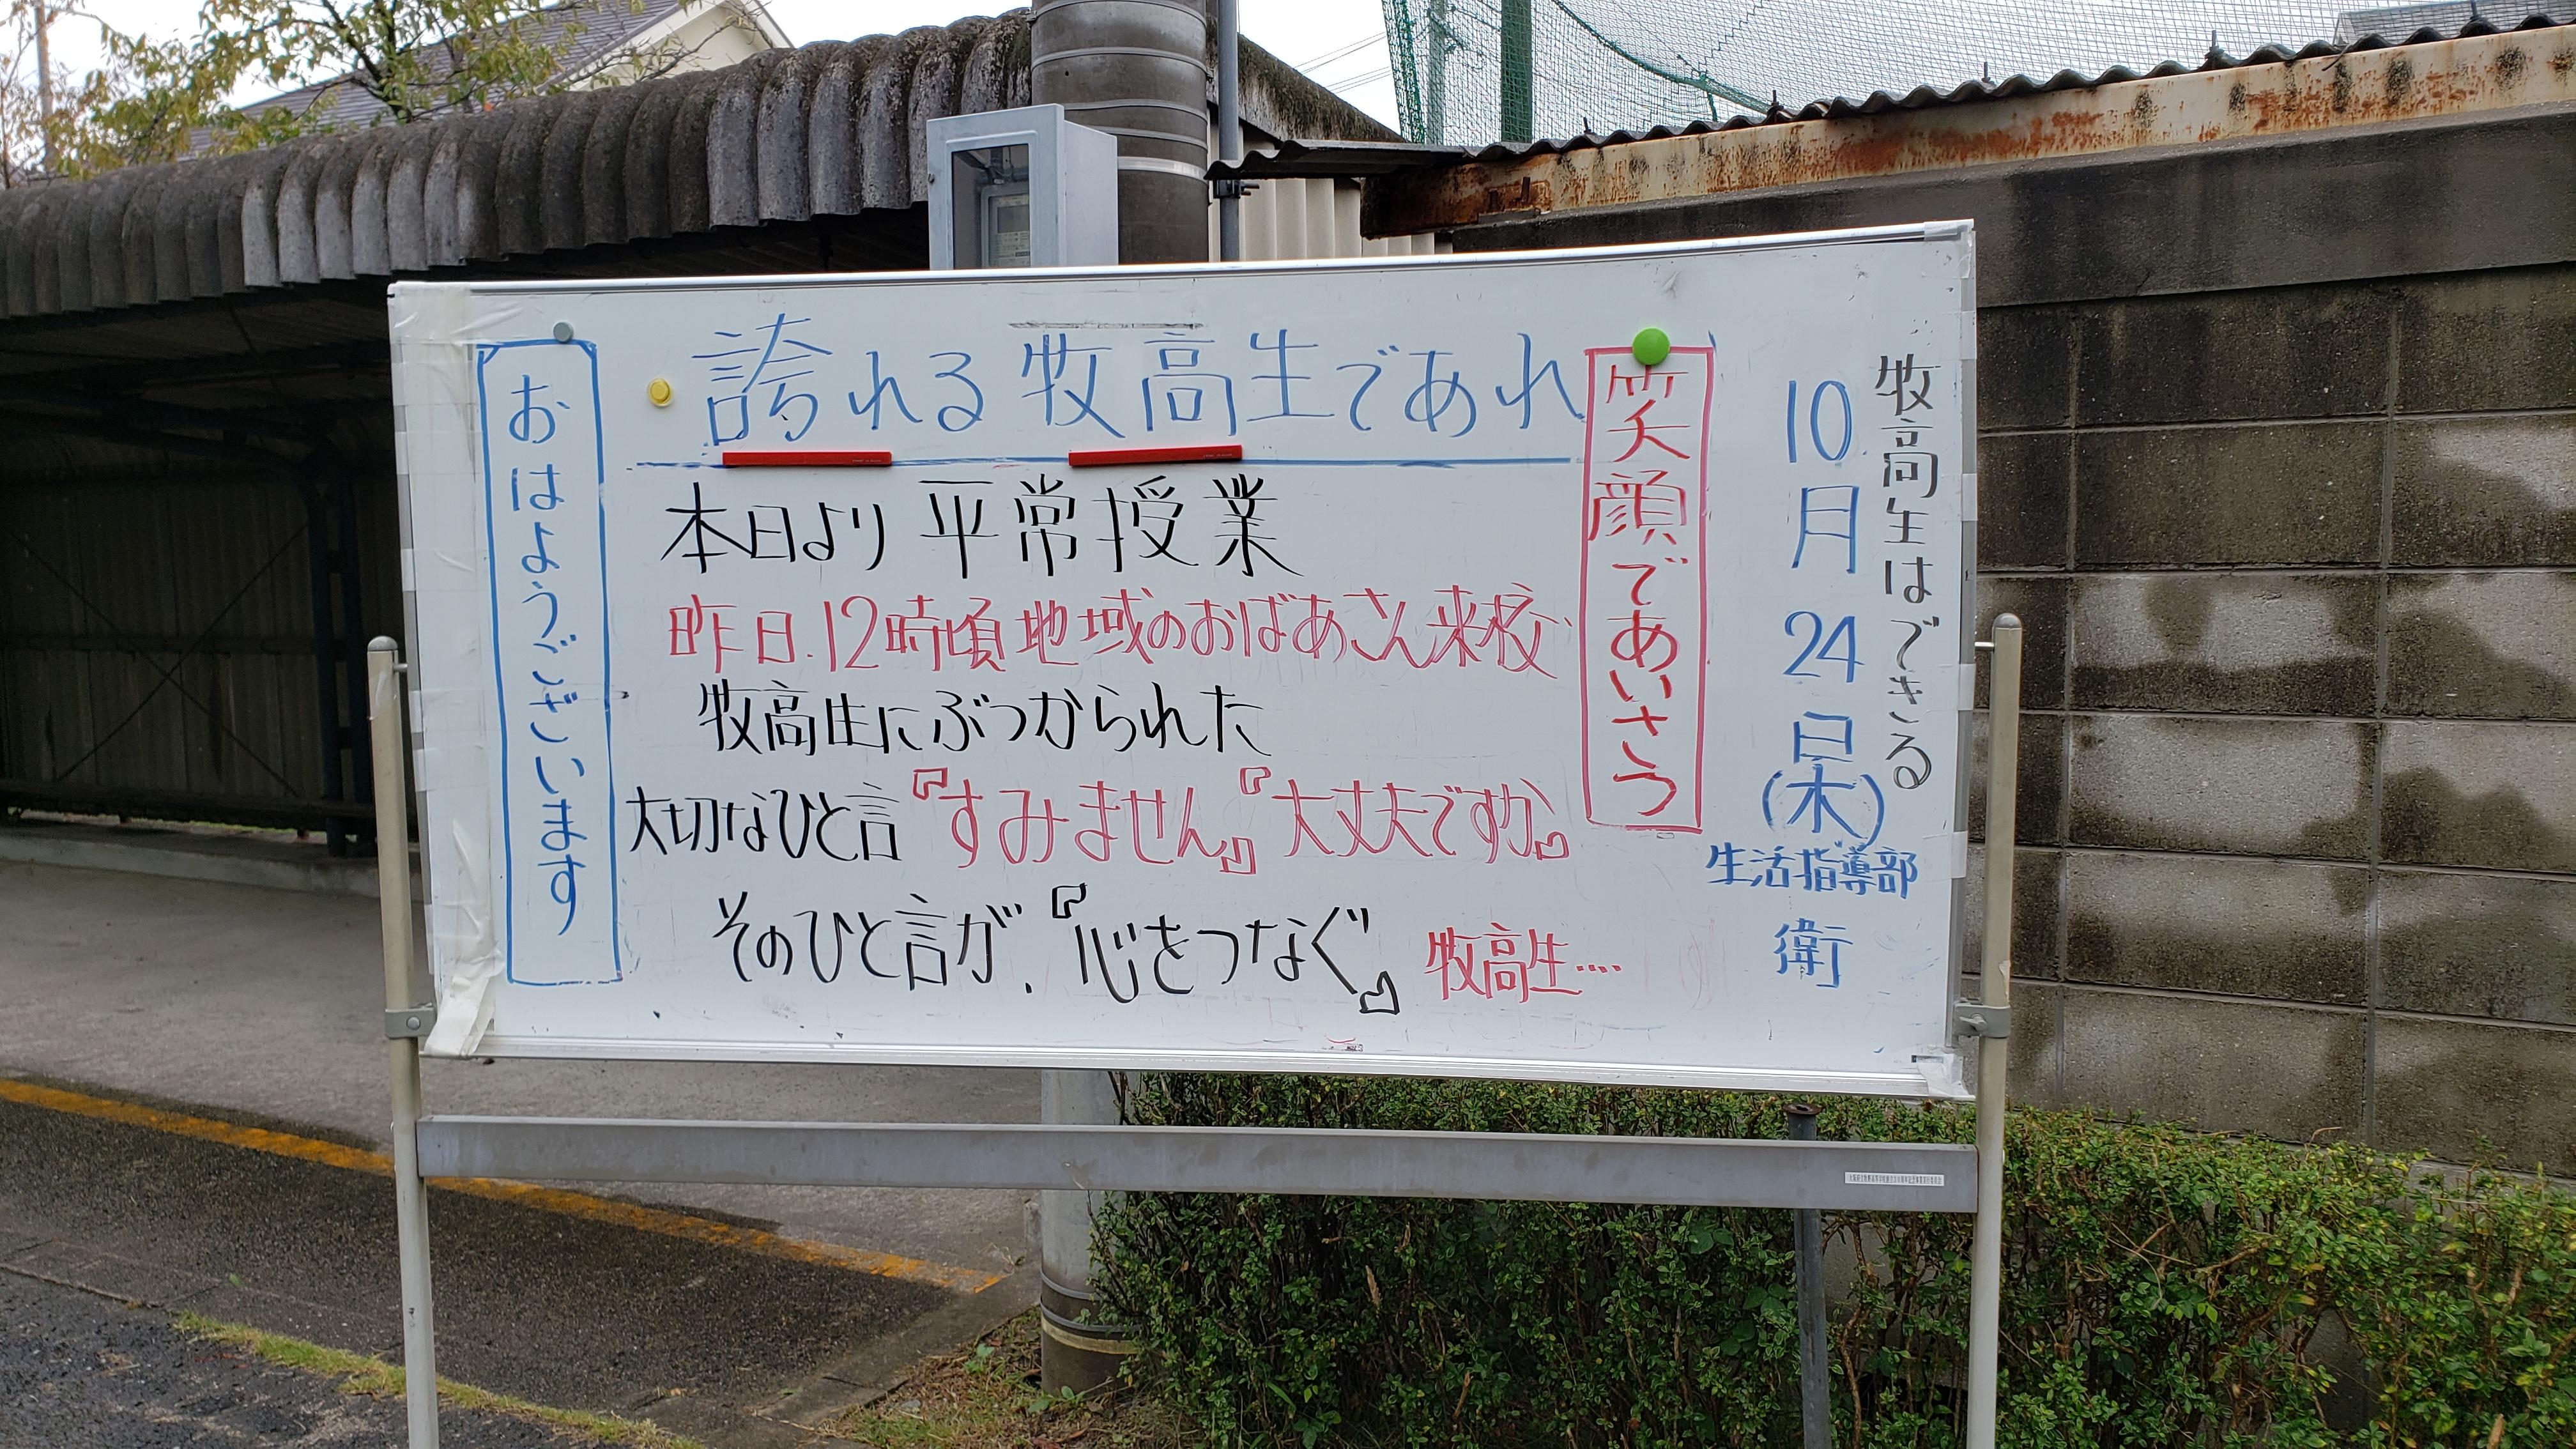 牧高生はできる
10月24日(木)
生活指導部
衛
笑顔であいさつ
誇れる牧高生であれ
本日より平常授業
昨日.12時頃地域のおばあさん来校
牧高生にぶつかられた
大切なひと言『すみません』『大丈夫ですか』
そのひと言が、『心をつなぐ』牧高生....
おはようございます